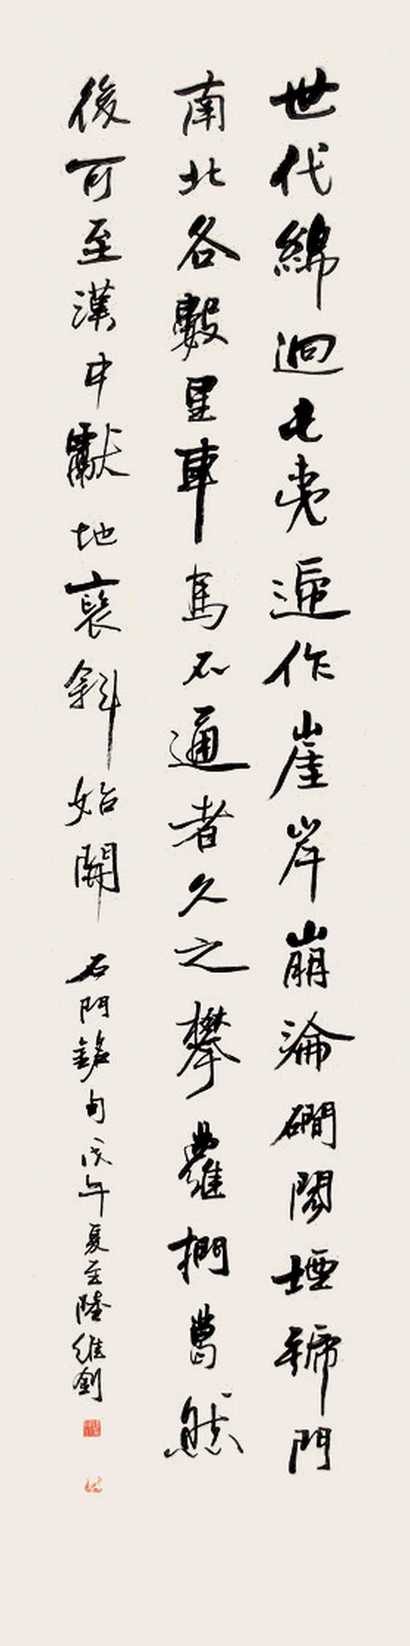 世代綿迴屯夷遞作崖岸崩淪磵閣堙褫門
南北各數里車馬不通者久之攀蘿捫葛然
後可至漢中獻地褒斜始開 石門銘句戊午夏至陸維釗